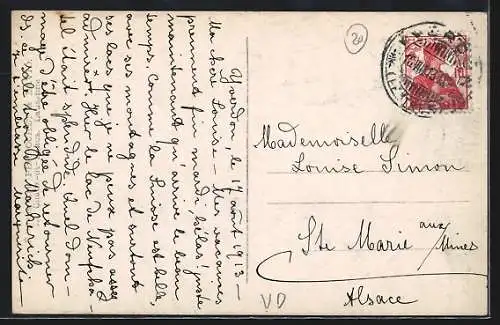 Yverdon, le 17 août 1913 –
Ma chère Louise – Mes vacances
prennent fin mardi, hélas! juste
maintenant qu'arrive le beau
temps. Comme la Suisse est belle,
avec ses montagnes et surtout
ses lacs que je ne peux pas assez
admirer. Hier le lac de
était splendide. Quel dom-
mage d'être obligée de retourner
ds. ce sale
Je t'embrasse
Mademoiselle
Louise Simon
Ste Marie aux
Mines
Alsace
VD
20